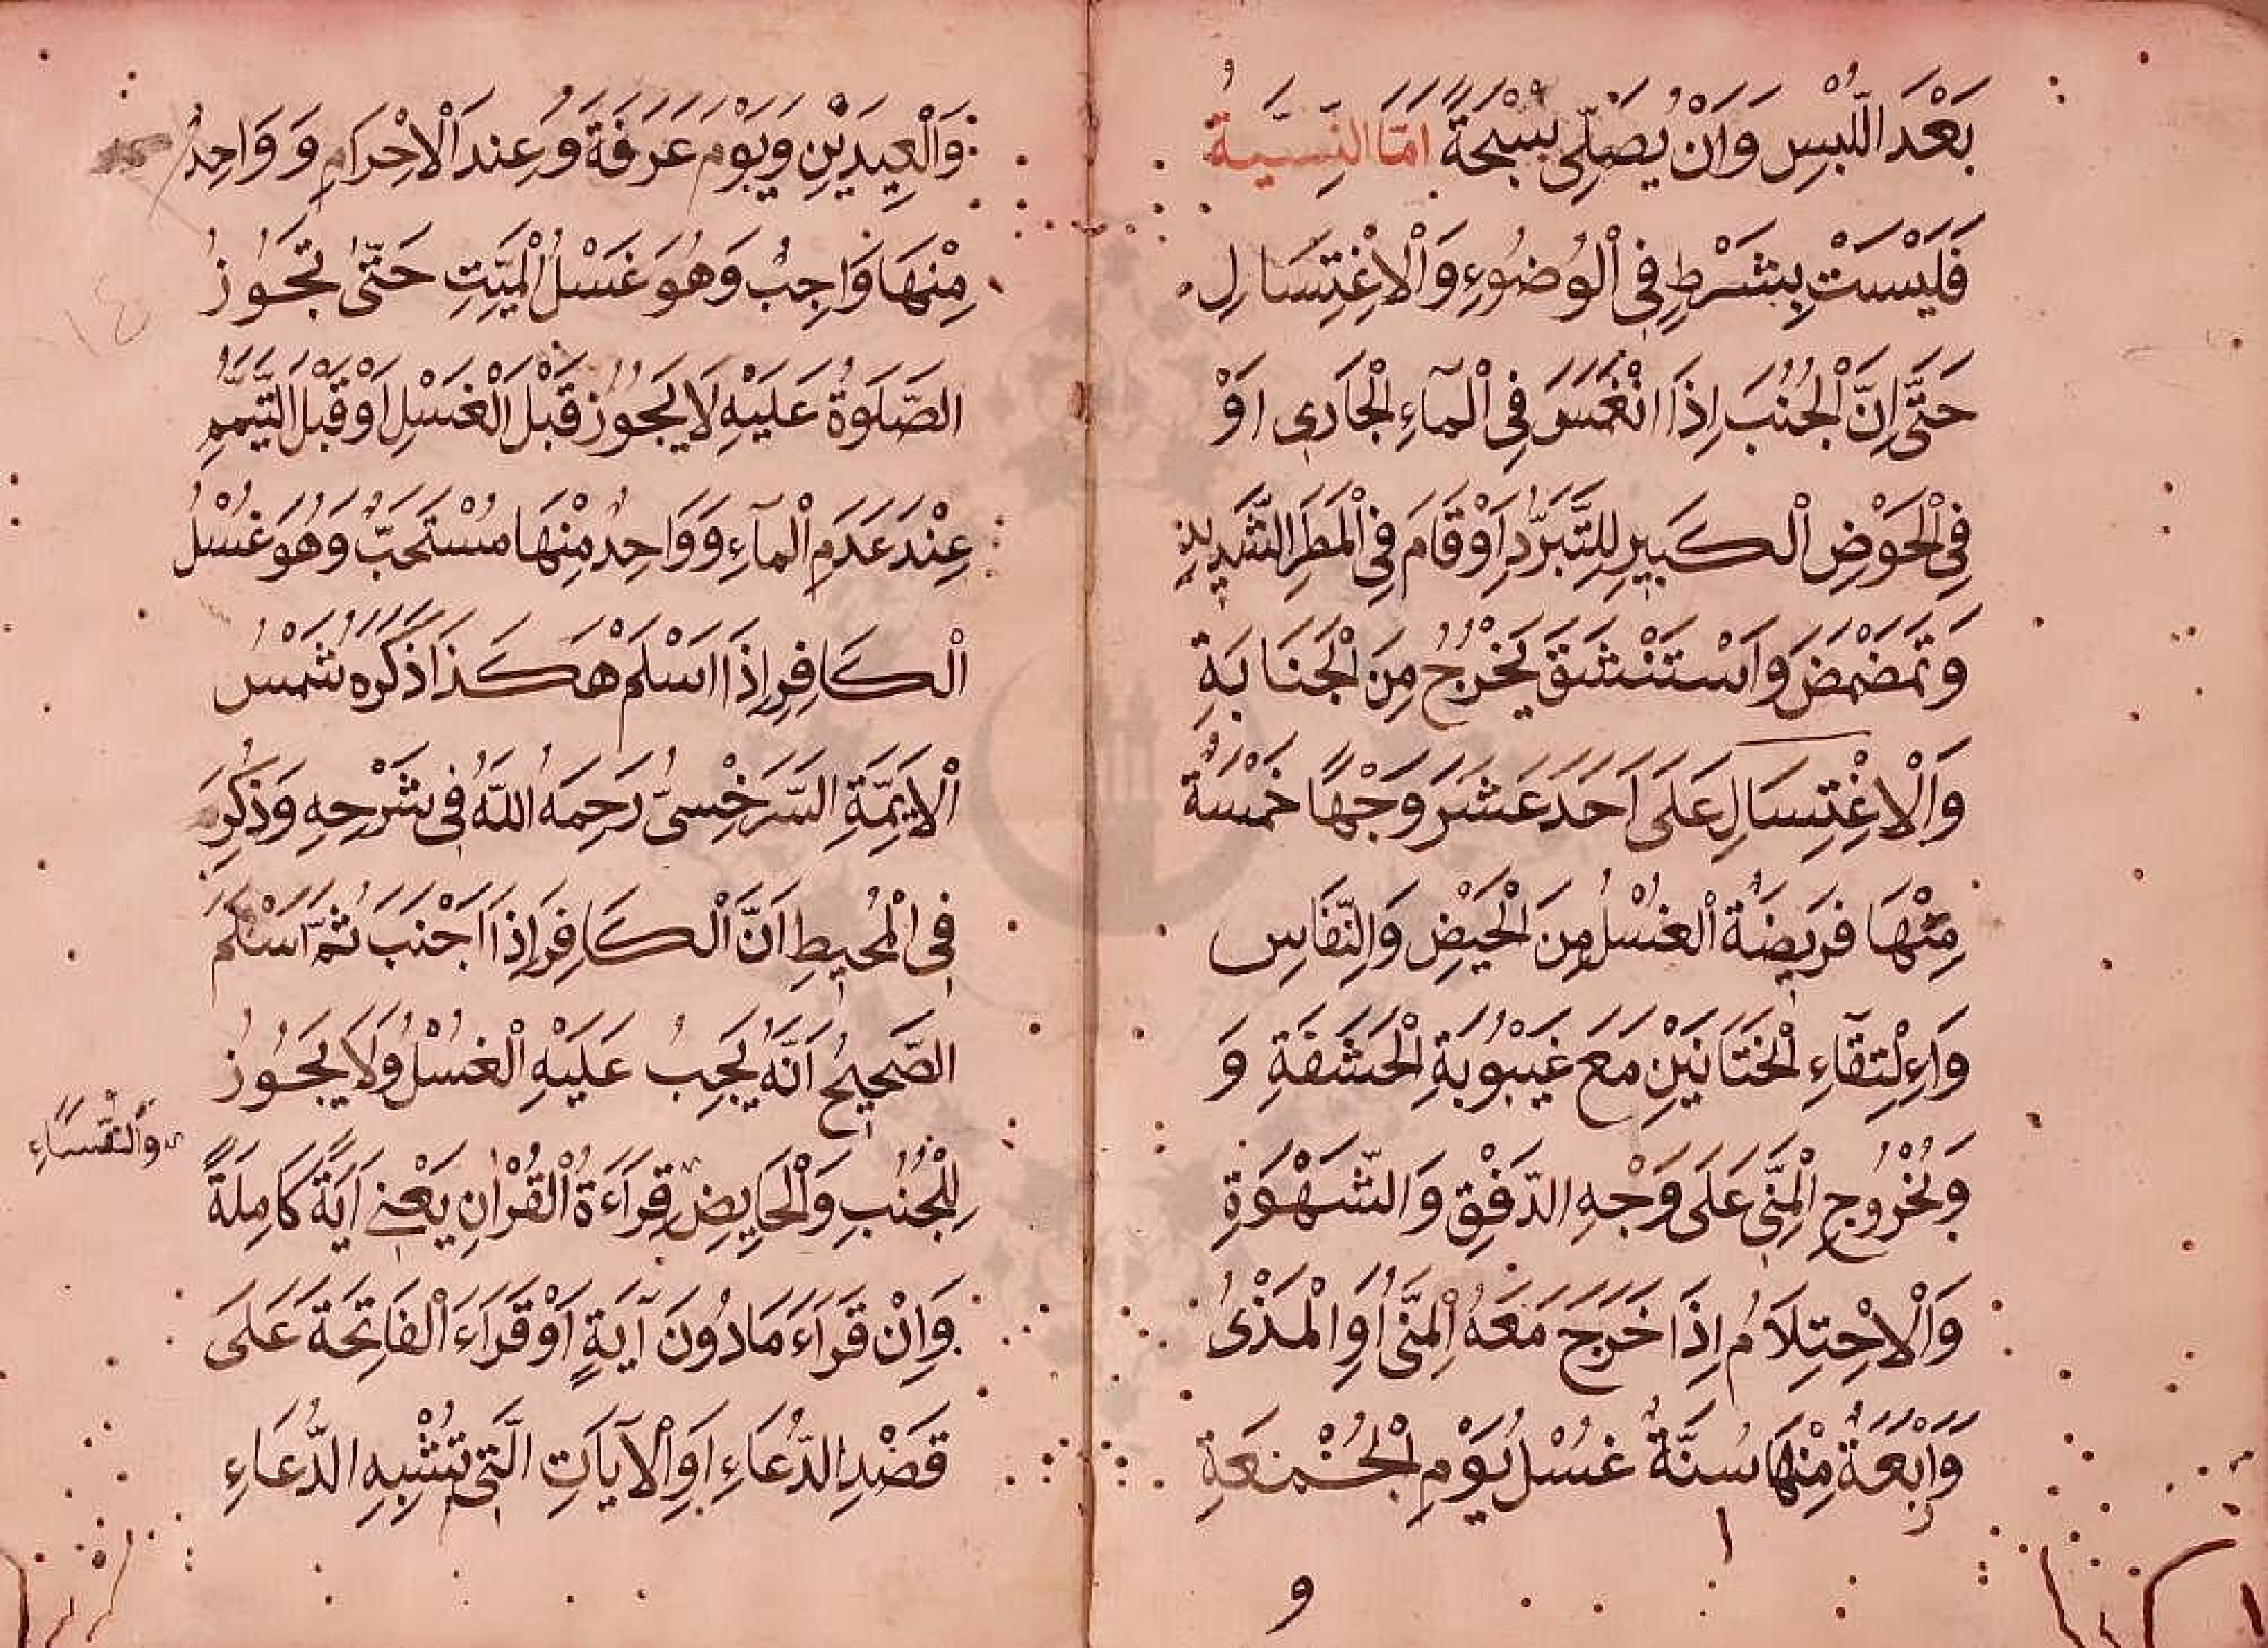 بَعْدَ اللُّبْسِ وَاَنْ يُصَلِّىَ سُبْحَةً اَمَّا النِّيَّةُ
فَلَيْسَتْ بِشَرْطٍ فِى الْوُضُوءِ وَالْاِغْتِسَالِ
حَتّٰى اِنَّ الْجُنُبَ اِذَا انْغَمَسَ فِى الْمآءِ الْجَارِى اَوْ
فِى الْحَوْضِ الْكَبِيرِ لِلتَّبَرُّدِ اَوْ قَامَ فِى الْمَطَرِ الشَّدِيدِ
وَتَمَضْمَضَ وَاسْتَنْشَقَ يَخْرُجُ مِنَ الْجَنَابَةِ
وَالْاِغْتِسَالِ عَلَى اَحَدَ عَشَرَ وَجْهًا خَمْسَةٌ
مِنْهَا فَرِيضَةٌ الْغُسْلُ مِنَ الْحَيْضِ وَالنِّفَاسِ
وَاِلْتِقَآءِ الْخَتَانَيْنِ مَعَ غَيْبُوبَةِ الْحَشَفَةِ وَ
وَخُرُوجِ الْمَنِّى عَلَى وَجْهِ الدَّفْقِ وَالشَّهْوَةِ
وَالْاِحْتِلَامُ اِذَا خَرَجَ مَعَهُ الْمَنِّى اَوِ الْمَذْىُ
وَاَرْبَعَةٌ مِنْهَا سُنَّةٌ غُسْلُ يَوْمِ الْجُمْعَةِ
و
وَالْعِيدَيْنِ وَيَوْمِ عَرَفَةَ وَعِنْدَ الْاِحْرَامِ وَوَاحِدٌ
مِنْهَا وَاجِبٌ وَهُوَ غَسْلُ الْمَيِّتِ حَتّٰى تَجُوزُ
الصَّلَوةُ عَلَيْهِ لَا يَجُوزُ قَبْلَ الْغَسْلِ اَوْ قَبْلَ التَّيَمُّمِ
عِنْدَ عَدَمِ الْمآءِ وَوَاحِدٌ مِنْهَا مُسْتَحَبٌّ وَهُوَ غُسْلُ
الْكَافِرِ اِذَا اَسْلَمَ هَكَذَا ذَكَرَهُ شَمْسُ
الْاَيِمَّةِ السَّرَخْسِىُّ رَحِمَهُ اللّٰهُ فِى شَرْحِهِ وَذُكِرَ
فِى الْمُحِيطِ اَنَّ الْكَافِرَ اِذَا اَجْنَبَ ثُمَّ اَسْلَمَ
الصَّحِيحُ اَنَّهُ يَجِبُ عَلَيْهِ الْغُسْلُ وَلَا يَجُوزُ
لِلْجُنُبِ وَالْحَايِضِ قِرَآءَةُ الْقُرْاٰنِ يَعْنِى اٰيَةً كَامِلَةً
وَالنُّفَسَاءِ
وَاِنْ قَرَاَءَ مَادُونَ آيَةٍ اَوْ قَرَاَءَ الْفَاتِحَةَ عَلَى
قَصْدِ الدُّعَاءِ اَوِ الْآيَاتِ الَّتِى تُشْبِهِ الدُّعَاءِ